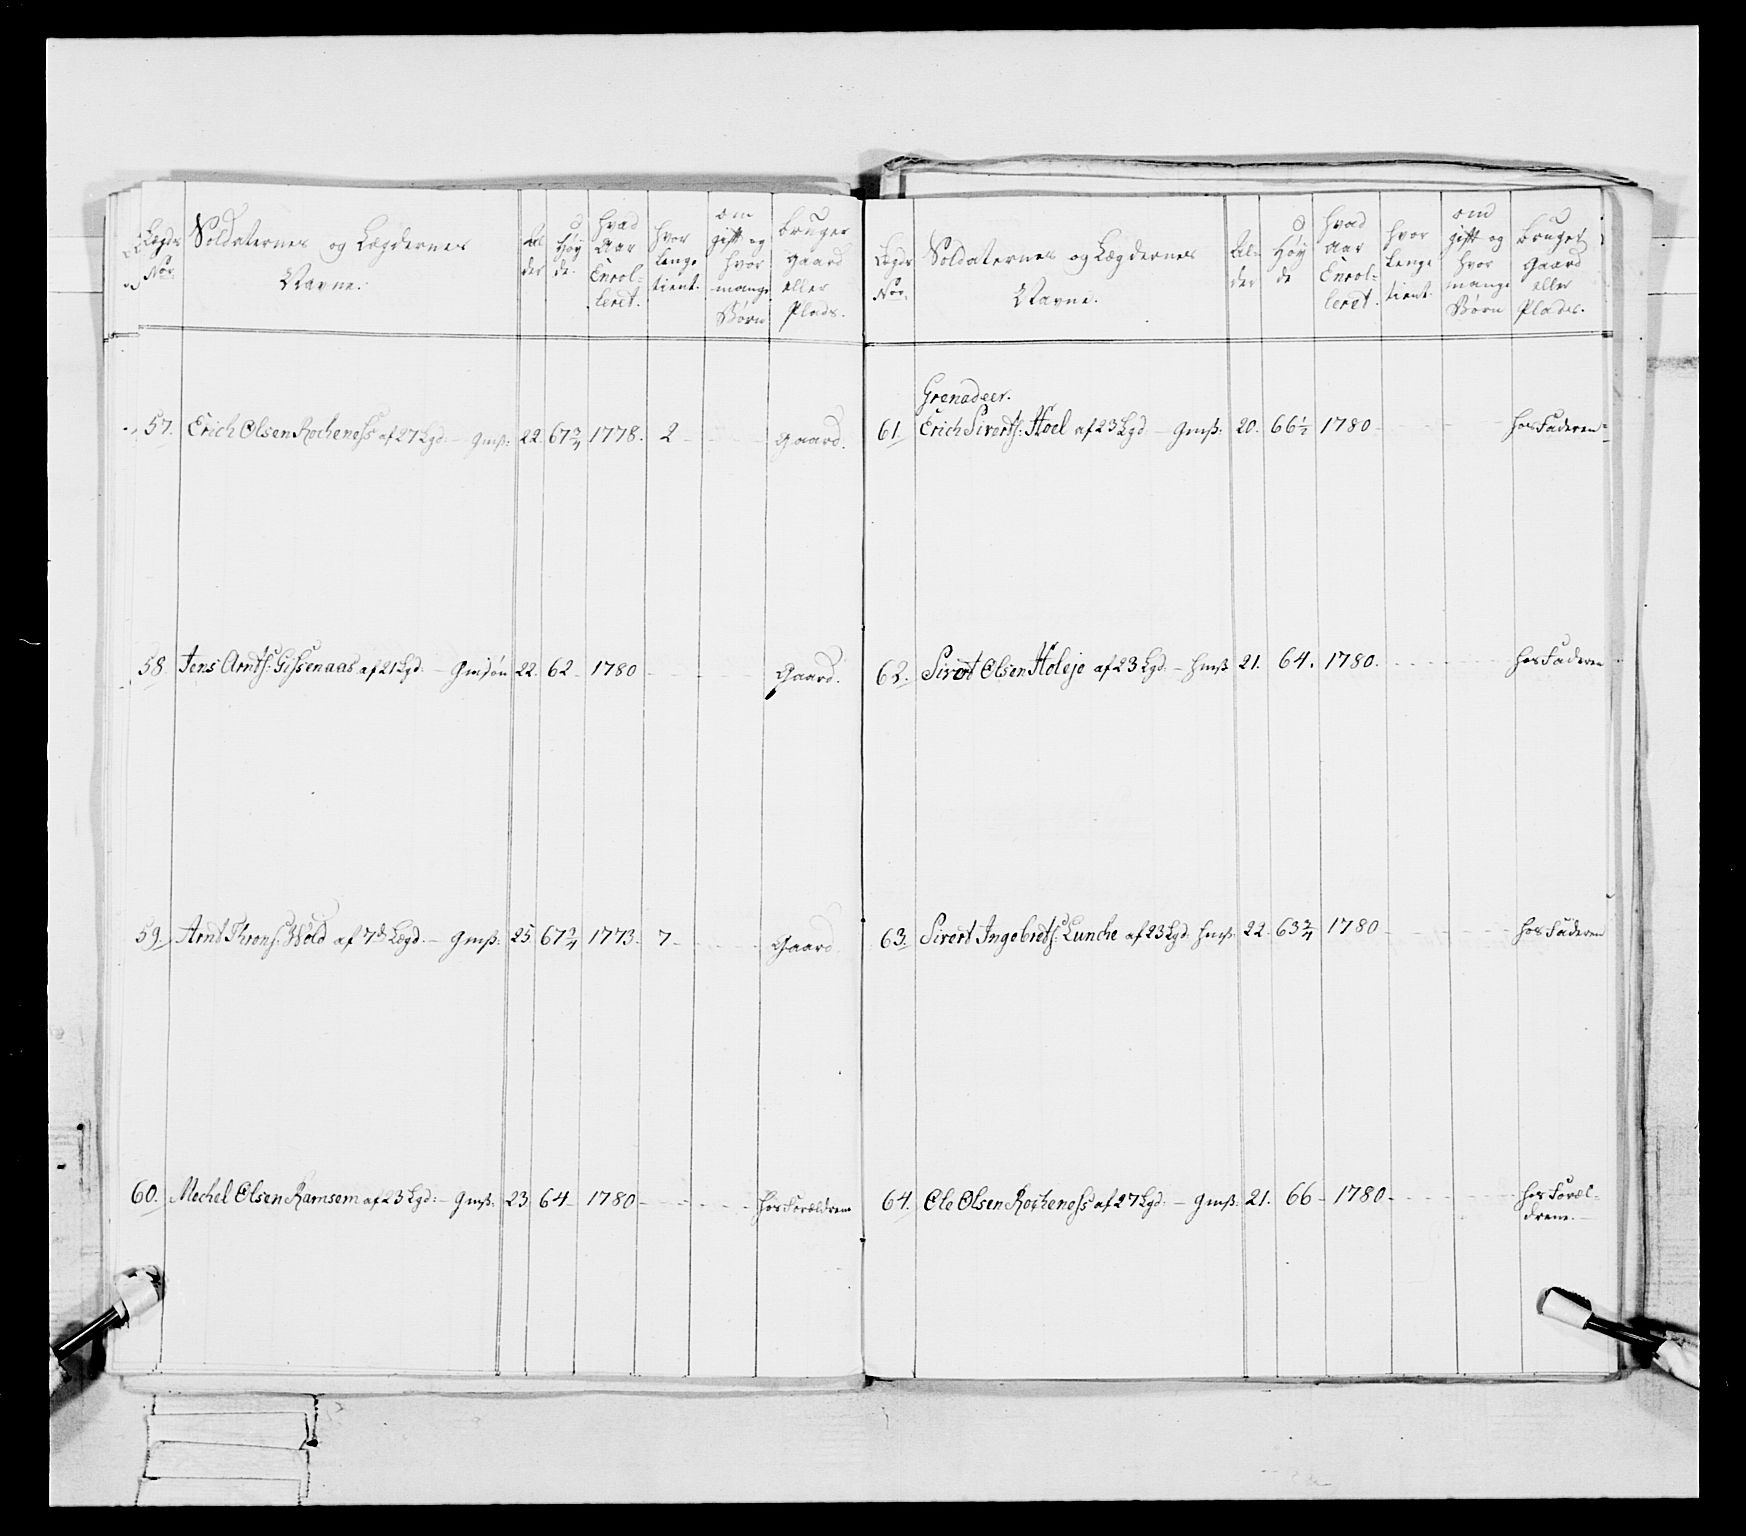 Lægds Nor.
Soldaternes og Lægdernes Navne.
Alder
Høyde.
hvad Aar Enrolleret.
hvor lenge tient.
om gift og hvor mange Børn
bruger gaard eller Plads.
57. Erich Olsen Rocheness af 27 Lgd. - Gmß: 22. 67 3/4 1778. 2 - - - Gaard.
58. Jens Arntz: Gissenaas af 21 Lgd. - Gmsøn 22. 62 - 1780 - - - Gaard.
59. Arnt Throns: Wold af 7de Lægd. - Gmß. 25. 67 3/4 1773. 7 - - - Gaard.
60. Mechel Olsen Ramsem af 23 Lgd: - Gmß. 23. 64 - 1780 - - - hos Forældrene
Lægds Nor.
Soldaternes og Lægdernes Navne.
Alder
Høyde
hvad Aar Enrolleret.
hvor lenge tient.
om gift og hvor mange Børn
bruger Gaard eller Plads.
Grenadeer.
61. Erich Siverts: Hoel af 23 Lgd - Gmß. 20. 66 1/2 1780 - - - hos Faderen
62. Sivert Olsen Holeje af 23 Lgd. - hmß 21. 64. 1780. - - - hos Faderen
63. Sivert Ingebrets: Lunche af 23 Lgd. hmß. 22. 63 3/4 1780 - - - hos Faderen
64. Ole Olsen Rocheness af 27 Lgd. - Gmß. 21. 66 - 1780 - - - hos Foræl-
drene.